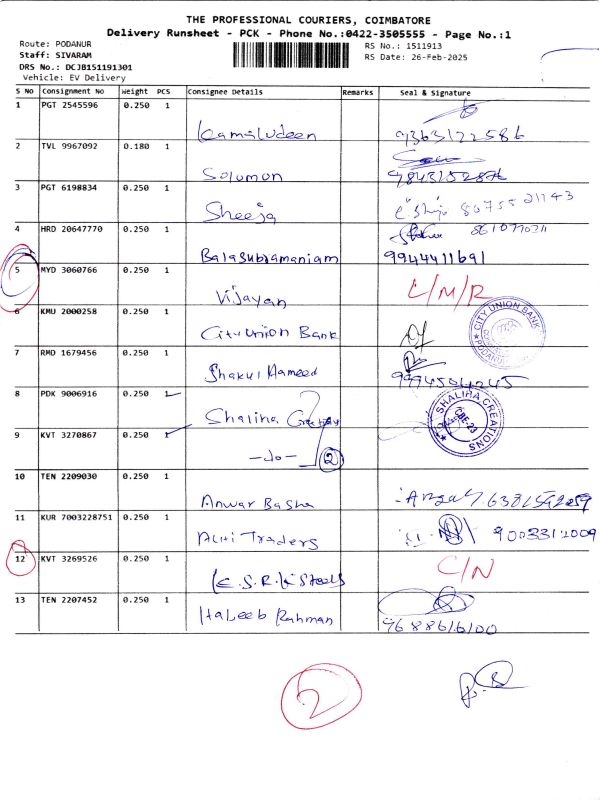 THE PROFESSIONAL COURIERS, COIMBATORE
Delivery Runsheet - PCK - Phone No.:0422-3505555 - Page No.:1
Route: PODANUR
Staff: SIVARAM
DRS No.: DCJB151191301
Vehicle: EV Delivery
RS No.: 1511913
RS Date: 26-Feb-2025
S No Consignment No Weight PCS Consignee Details Remarks Seal & Signature
1 PGT 2545596 0.250 1 Kamaludeen 9363122586
2 TVL 9967092 0.180 1 Solomon
3 PGT 6198834 0.250 1 Sheeja
4 HRD 20647770 0.250 1 Balasubramaniam 9944411691
5 MYD 3060766 0.250 1 Vijayan L/M/R
6 KMU 2000258 0.250 1 City Union Bank
CITY UNION BANK
7 RMD 1679456 0.250 1 Shakul Hameed 9994504245
8 PDK 9006916 0.250 1 Shaliha
SHALIHA CREATIONS
CBE-23
9 KVT 3270867 0.250 1 -do- 2
10 TEN 2209030 0.250 1 Anwar Basha
11 KUR 7003228751 0.250 1 Traders 9003312009
12 KVT 3269526 0.250 1 Steels C/N
13 TEN 2207452 0.250 1 Haleeb Rahman 9688616100
2